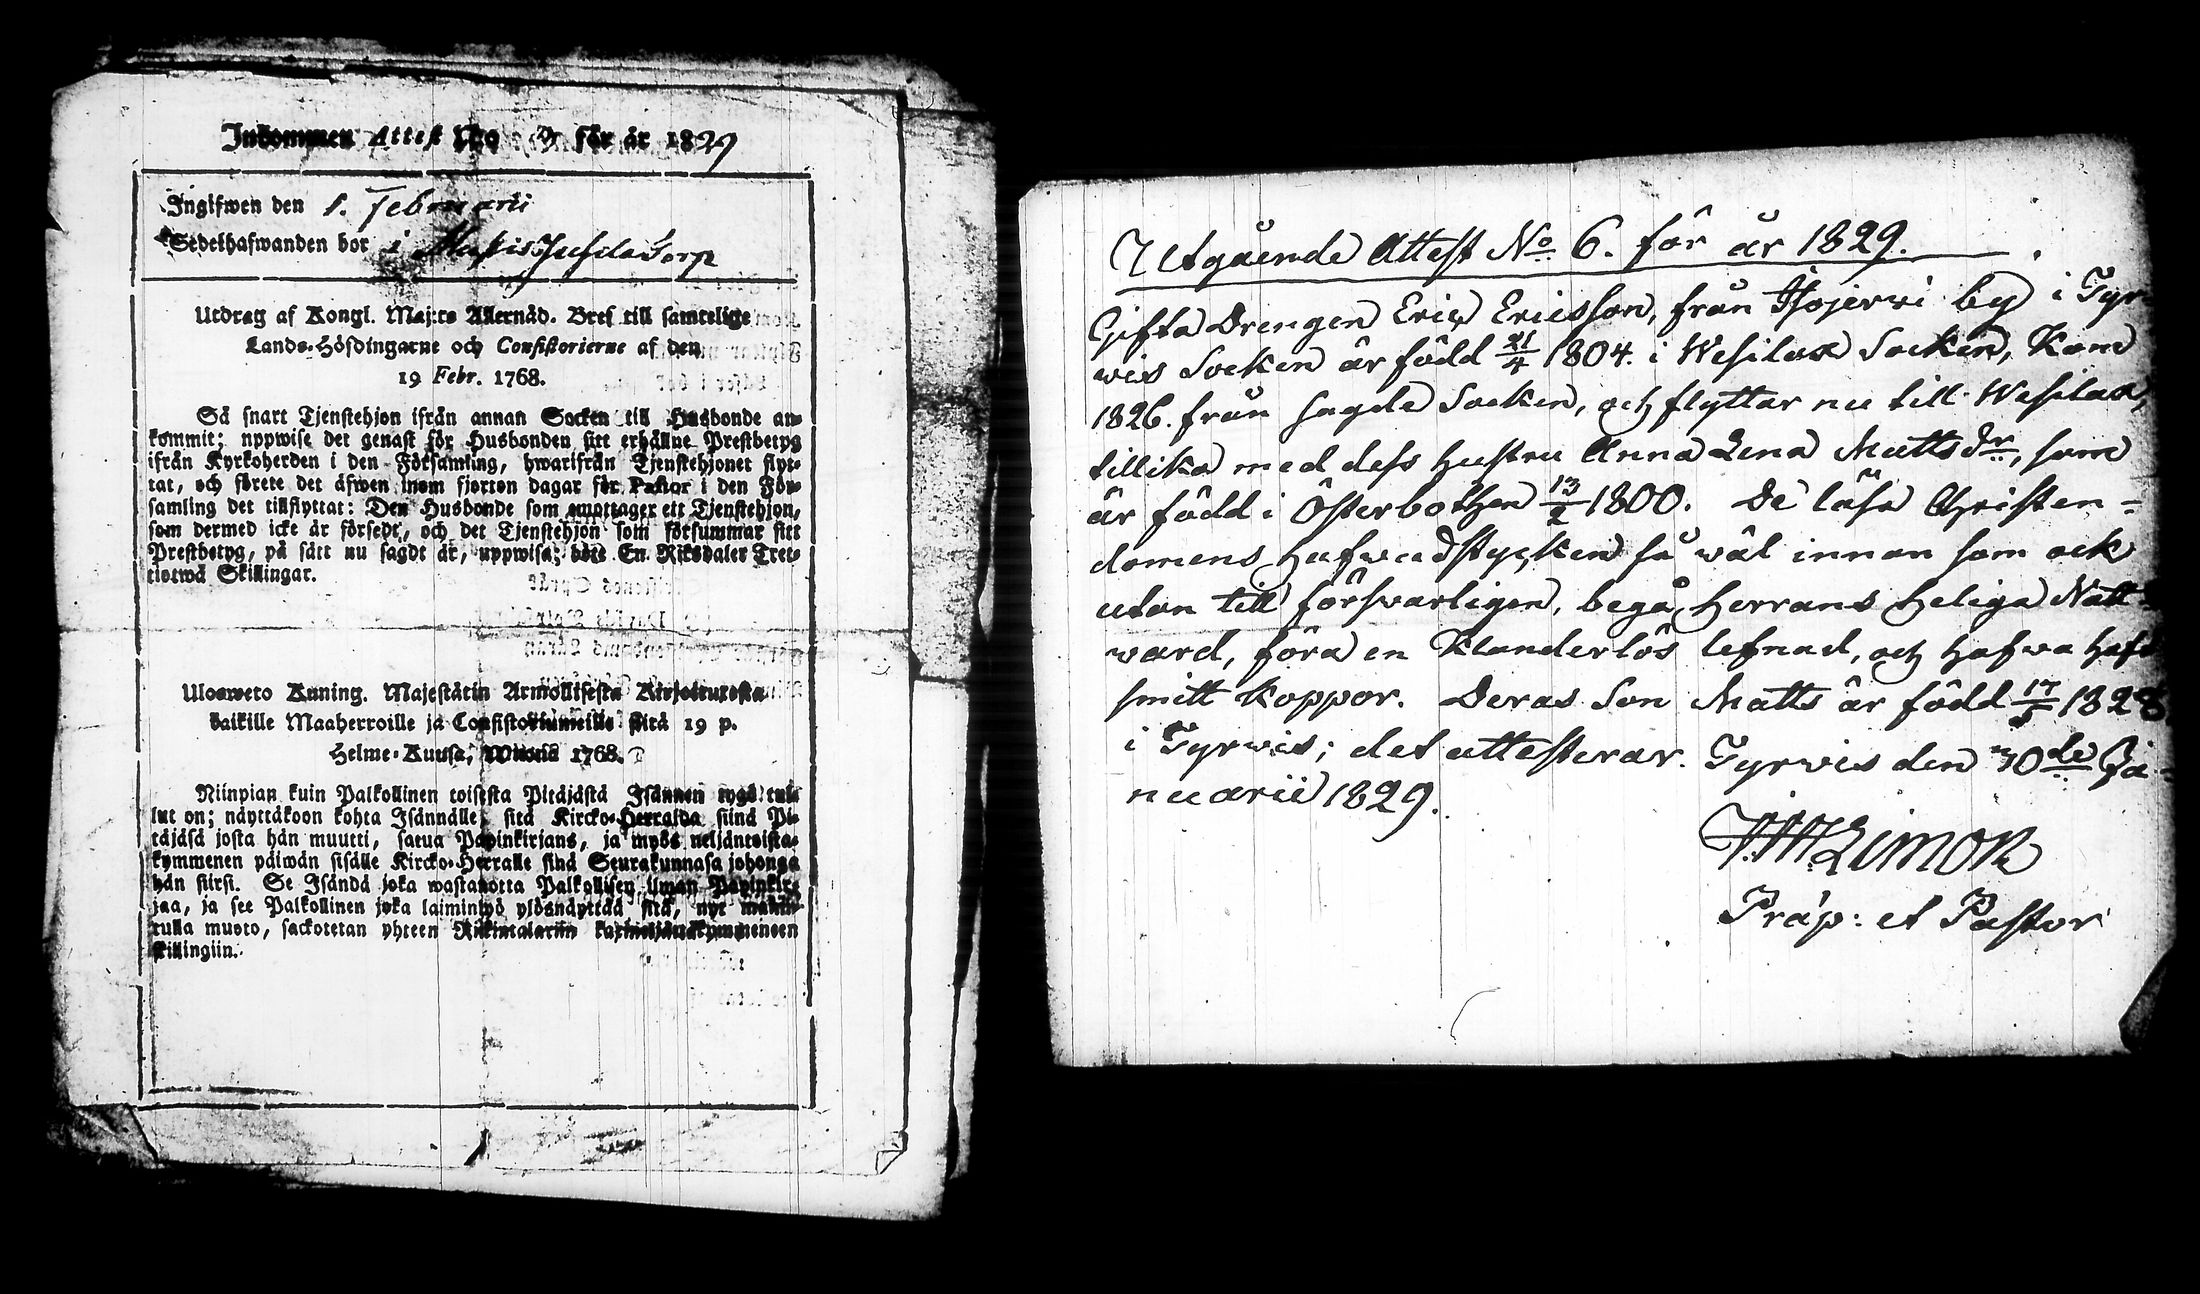 Inkommen Attest No för år 1829
Ingifwen den 1. Februarii
Sedelhafwanden bor i Torp
Utdrag af Kongl. Maj:ts Allernåd. Bref till samtelige
Lands-Höfdingarne och Consistorierne af den
19 Febr. 1768.
Så snart Tjenstehjon ifrån annan Socken till Husbonde an-
kommit; uppwise det genast för Husbonden sitt erhållne Prestbetyg
ifrån Kyrkoherden i den Församling, hwarifrån Tjenstehjonet flyt-
tat, och förete det äfwen inom fjorton dagar för Pastor i den För-
samling det tillflyttat: Den Husbonde som emottager ett Tjenstehjon,
som dermed icke är försedt, och det Tjenstehjon som försummar sitt
Prestbetyg, på sätt nu sagdt är, uppwisa; böte En Riksdaler Tret-
tiotwå Skillingar.
Ulosweto Kuning. Majestätin Armollisesta Kirjoituxesta
kaikille Maaherroille ja Consistoriumeille sitä 19 p.
Helme-Kuusa, Wuona 1768.
Niinpian kuin Palkollinen toisesta Pitäjästä Isännän tygö tul-
lut on; näyttäkoon kohta Isännälle, sitä Kircko-Herralda siinä Pi-
täjäsä josta hän muutti, saatua Papinkirjans, ja myös neljäntoista-
kymmenen päiwän sisälle Kircko-Herralle siinä Seurakunnasa johonga
hän siirsi. Se Isändä joka wastanotta Palkollisen ilman Papinkir-
jaa, ja see Palkollinen joka laiminlyö ylösnäyttää sitä, nyt mainit-
tulla muoto, sackotetan yhteen Rikintalariin kolmeenkymmeneen
skillingiin.
Utgående Attest No. 6. för år 1829.
Gifta Drengen Eric Ericsson, från Isojerwi by i Tyr-
wis Socken är född 21/4 1804. i Wesilax Socken, Kom
1826. från sagde Socken, och flyttar nu till Wesilax,
tillika med dess hustru Anna Lena Mattsdr, som
är född i Österbothen 13/2 1800. De läsa Christen-
domens hufwudstycken så wäl innan som ock
utan till försvarligen, begå Herrans Heliga Natt-
ward, föra en Klanderlös lefnad, och hafwa haft
smitt koppor. Deras Son Matts är född 17/5 1828
i Tyrwis; det attesterar. Tyrwis den 30de Ja-
nuarii 1829.
Limon
Präp: et Pastor